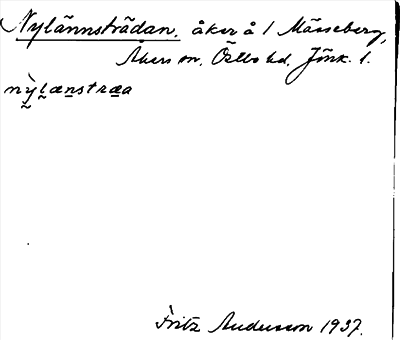 Nylännsträdan. åker å 1 Mässeberg,
Åkers sn. Östbo hd. Jönk. l.
ny̆lænstræa
Fritz Andersson 1937.